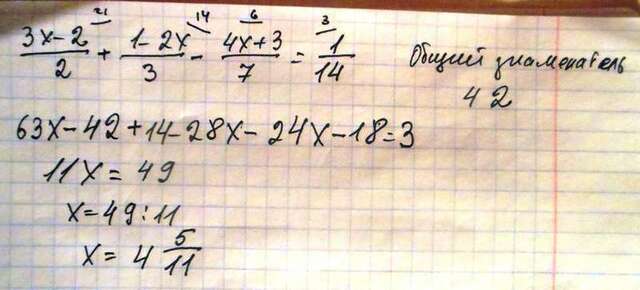 (3x-2)/2 ²¹ + (1-2x)/3 ¹⁴ - (4x+3)/7 ⁶ = 1/14 ³ Общий знаменатель
42
63x-42+14-28x-24x-18=3
11x=49
x=49:11
x=4 5/11